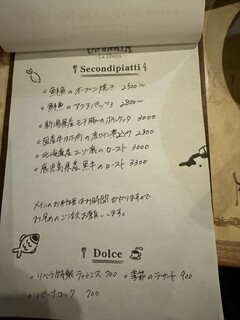 Secondipiatti
鮮魚のオーブン焼き 2500〜
鮮魚のアクアパッツァ 2800〜
新潟県産もち豚のポルケッタ 3000
国産牛ホホ肉の赤ワイン煮込み 2800
北海道産エゾ鹿のロースト 3300
鹿児島県産黒牛のロースト 3300
メインのお料理はお時間かかりますので
お早めのご注文お願いします。
Dolce
特製ティラミス 700 季節のデザート 900
700